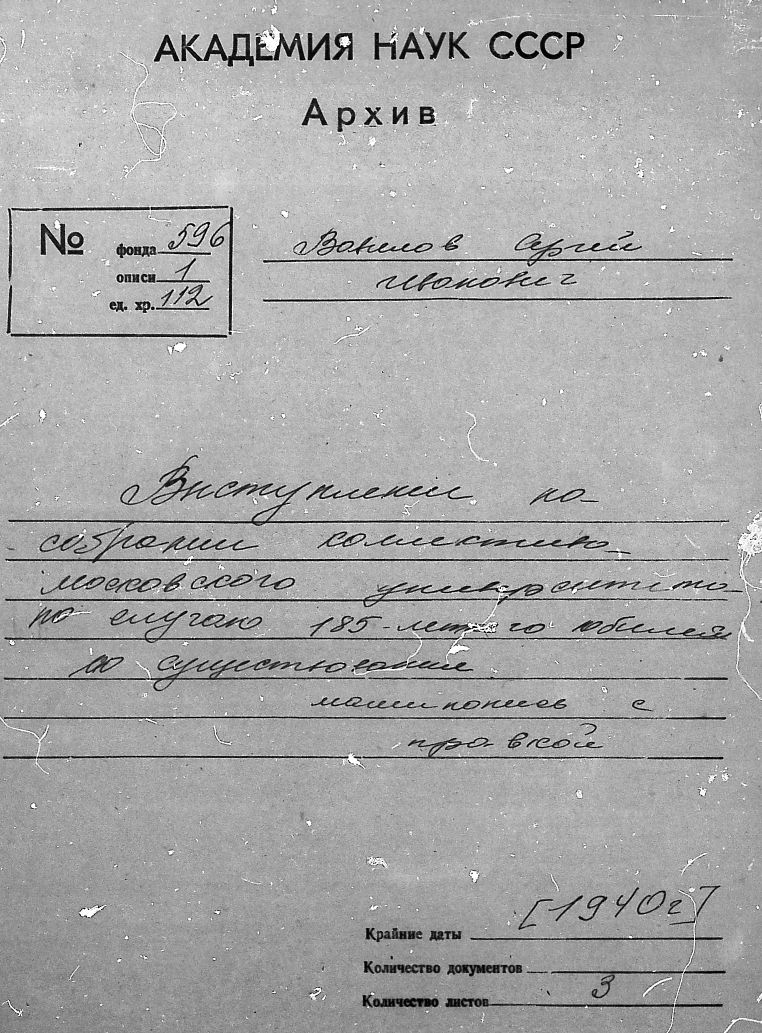 АКАДЕМИЯ НАУК СССР
Архив
№
фонда 596
описи 1
ед. хр. 112
Вавилов Сергей
Иванович
Выступление на
собрании коллектива
московского университета
по случаю 185-летнего юбилея
его существования
машинопись с
правкой
[1940г]
Крайние даты
Количество документов
Количество листов 3